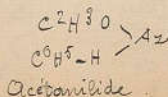 C²H³O
Az
C⁶H⁵-H
Acétanilide.